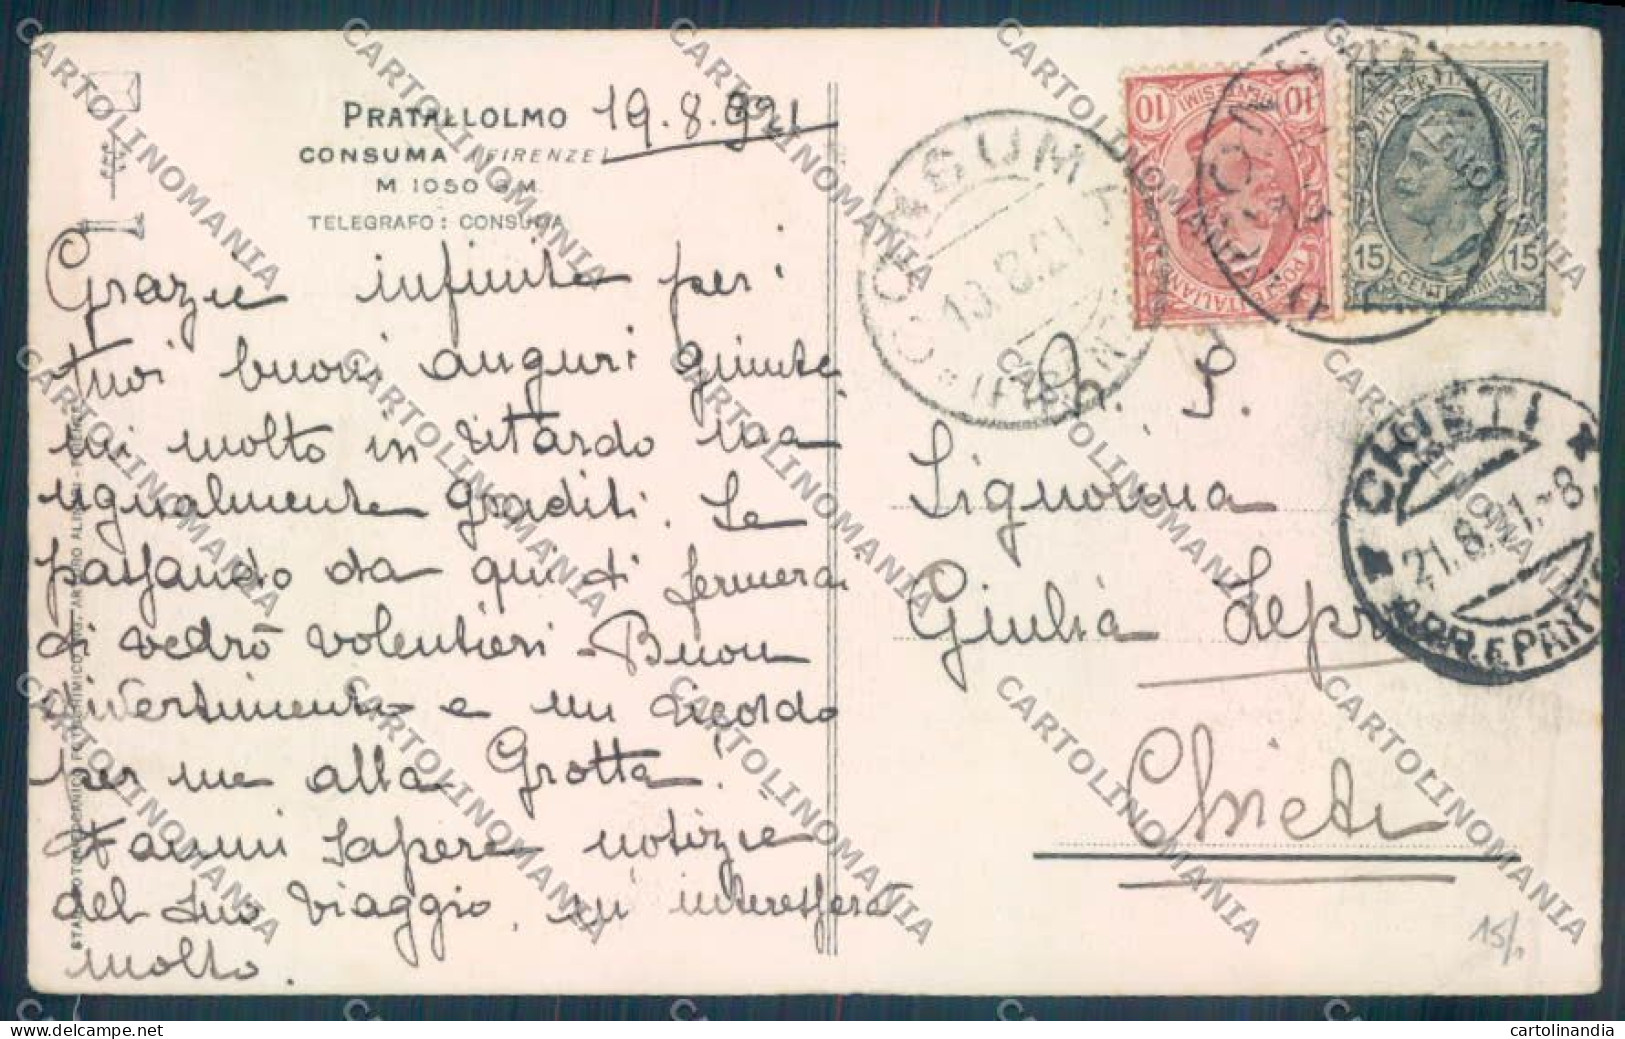 PRATALLOLMO 19.8.921
CONSUMA (FIRENZE)
M 1050 S M
TELEGRAFO: CONSUMA
Grazie infinite per i
tuoi buoni auguri giunte
mi molto in ritardo ma
ugualmente graditi. Se
passando da qui ti fermerai
ti vedrò volentieri. Buon
divertimento e un ricordo
per me alla Grotta.
Fammi sapere notizie
del tuo viaggio, mi interesserà
molto.
CONSUMA
19.8.21
(FIRENZE)
CENTESIMI
10 10
POSTE ITALIANE
POSTE ITALIANE
15 CENTESIMI 15
Signorina
Giulia
Chieti
CHIETI
21.8.21.-8
ARR. E PART
15/
CARTOLINOMANIA
cartolinandia